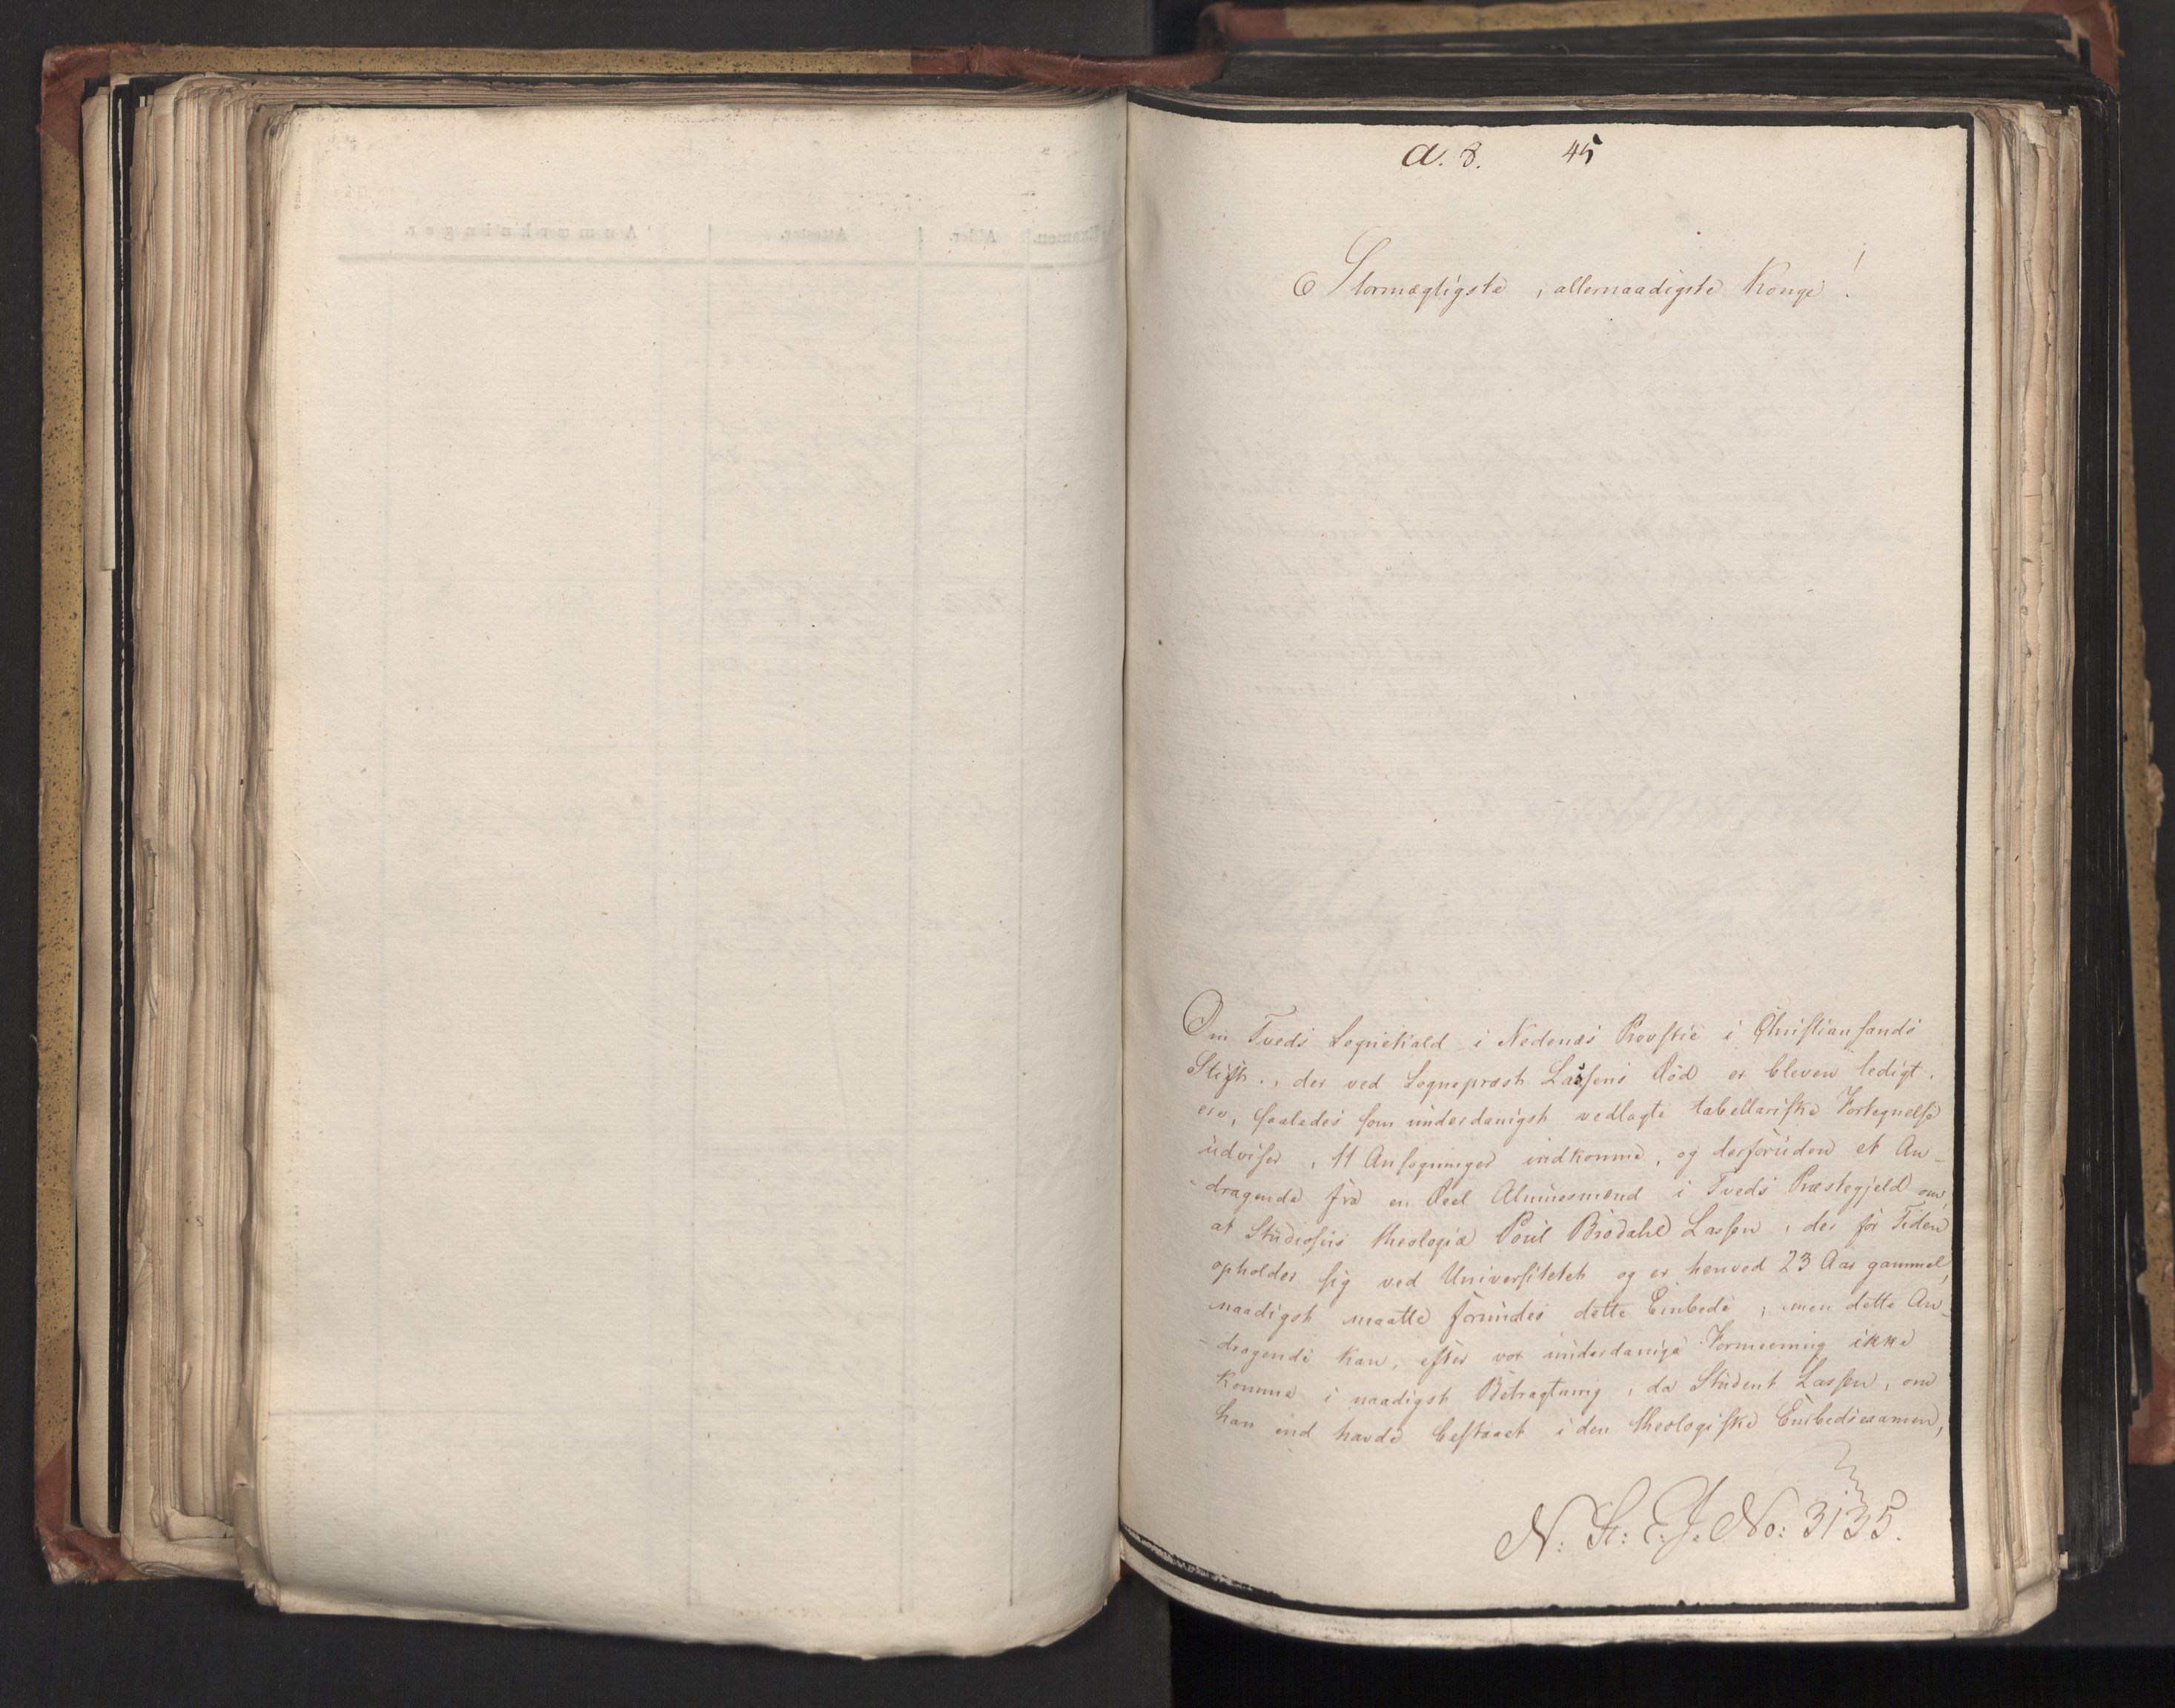 A. 8. 45
Stormægtigste, allernaadigste Konge!
Om Tveds Sognekald i Nedenæs Provstie i Christiansands
Stift, der ved Sognepræst Lassens Död er bleven ledigt.
ere, saaledes som underdanigst vedlagte tabellariske Fortegnelse
udviser, 11 Ansögninger indkomne, og desforuden et An-
-dragende fra en Deel Almuesmænd i Tveds Præstegjeld om,
at Studiosus theologiæ Poul Brodahl Lassen, der for Tiden
opholder sig ved Universitetet og er henved 23 Aar gammel,
naadigst maatte forundes dette Embede; men dette An-
-dragende kan, efter vor underdanige Formeening ikke
komme i naadigst Betragtning, da Student Lassen, om
han end havde bestaaet i den theologiske Embedsexamen,
N: St: E. J. No: 3135.
Anmærkninger
Attester.
Alder.
Examen.